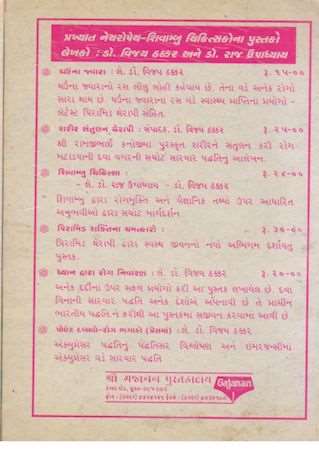 પ્રખ્યાત નેચરોપેથ-શિવામ્બુ ચિકિત્સકોના પુસ્તકો
લેખકો : ડૉ. વિજય ઠક્કર અને ડૉ. રાજ ઉપાધ્યાય
ઘઉંના જવારા : લે. ડૉ. વિજય ઠક્કર રૂ. ૧૫-૦૦
ઘઉંના જવારાનો રસ લીલું લોહી કહેવાય છે. તેના વડે અનેક રોગો
સારા થાય છે. ઘઉંના જવારાના રસ વડે સ્વાસ્થ્ય પ્રાપ્તિના પ્રયોગો -
લેટેસ્ટ પિરામિડ થેરાપી સહિત.
શરીર સંતુલન થેરાપી : સંપાદક. ડૉ. વિજય ઠક્કર રૂ. ૨૫-૦૦
શ્રી રામજીભાઈ કનાજીમા પુરસ્કૃત શરીરને સંતુલન કરી રોગ
મટાડવાની દવા વગરની સચોટ સારવાર પદ્ધતિનું આલેખન.
શિવામ્બુ ચિકિત્સા : રૂ. ૨૬-૦૦
- લે. ડૉ. રાજ ઉપાધ્યાય - ડૉ. વિજય ઠક્કર
શિવામ્બુ દ્વારા રોગમુક્તિ અને વૈજ્ઞાનિક તથ્યો ઉપર આધારિત
અનુભવીઓ દ્વારા સચોટ માર્ગદર્શન
પિરામિડ શક્તિના ચમત્કારો : રૂ. ૩૦-૦૦
પિરામિડ થેરાપી દ્વારા સ્વસ્થ જીવનનો નવો અભિગમ દર્શાવતું
પુસ્તક.
ધ્યાન દ્વારા રોગ નિવારણ : લે. ડૉ. વિજય ઠક્કર રૂ. ૨૦-૦૦
અનેક દર્દીના ઉપર સફળ પ્રયોગો કરી આ પુસ્તક લખાયેલ છે. દવા
વિનાની સારવાર પદ્ધતિ અનેક દેશોએ અપનાવી છે તે પ્રાચીન
ભારતીય પદ્ધતિ ને ફરીથી આ પુસ્તકમાં સજીવન કરવામા આવી છે.
પોઈંટ દબાવો-રોગ ભગાવો (પ્રેસમાં) : લે. ડૉ. વિજય ઠક્કર
એક્યુપ્રેસર પદ્ધતિનું પદ્ધતિસર વિશ્લેષણ અને ઇમરજન્સીમાં
એક્યુપ્રેસર વડે સારવાર પદ્ધતિ
શ્રી ગજાનન પુસ્તકાલય
Gajanan